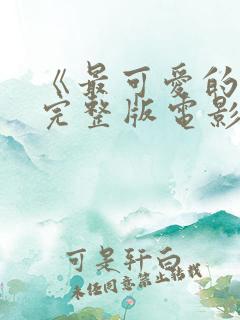 《最可爱的
完整版電影
可是轩白
未经同意禁止转载